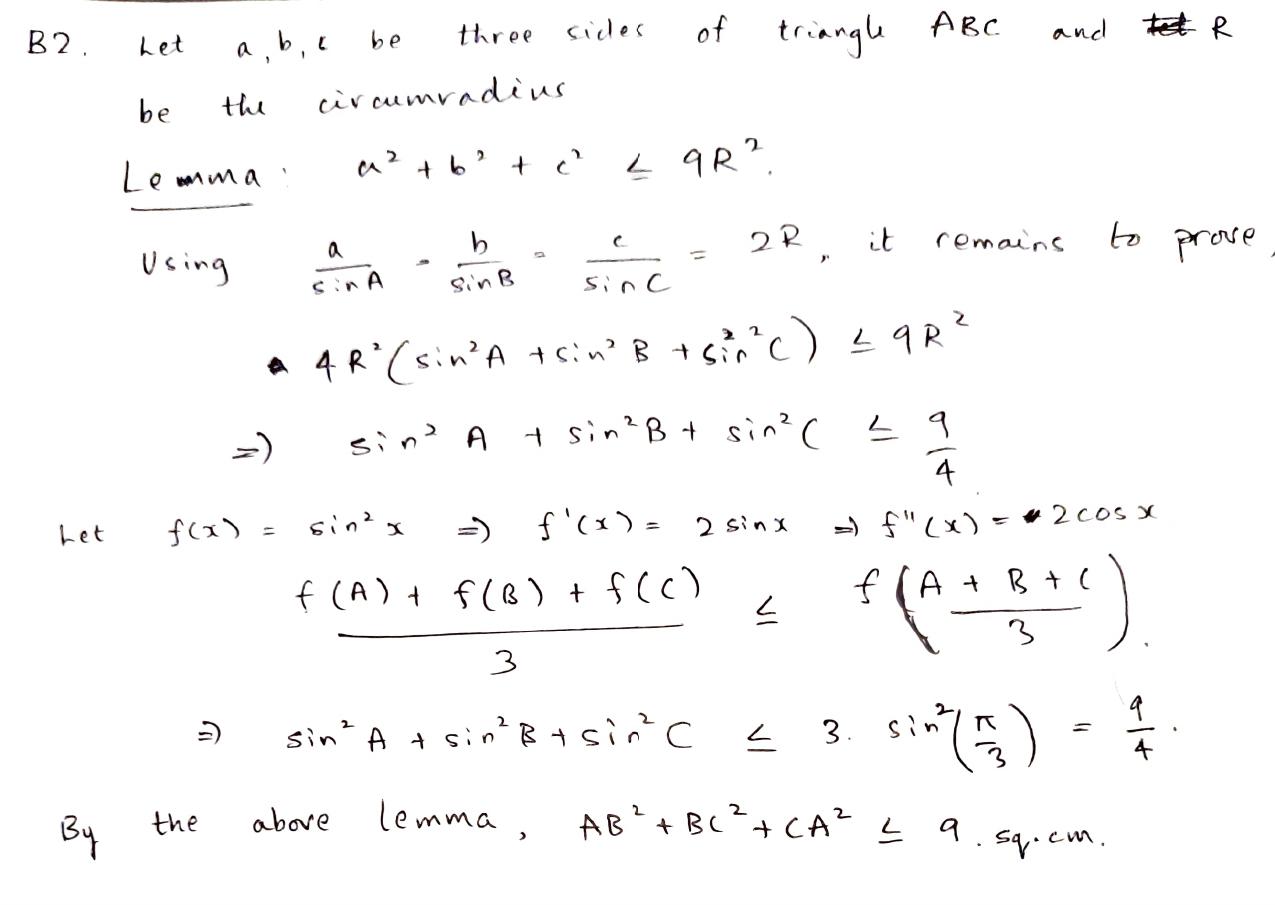 B2. Let a, b, c be three sides of triangle ABC and R
be the circumradius
Lemma: a² + b² + c² ≤ 9R².
Using a/sin A = b/sin B = c/sin C = 2R, it remains to prove,
4R²(sin²A + sin²B + sin²C) ≤ 9R²
⇒ sin²A + sin²B + sin²C ≤ 9/4
Let f(x) = sin²x ⇒ f'(x) = 2 sinx ⇒ f''(x) = 2 cos x
(f(A) + f(B) + f(C))/3 ≤ f((A + B + C)/3).
⇒ sin²A + sin²B + sin²C ≤ 3. sin²(π/3) = 9/4.
By the above lemma, AB² + BC² + CA² ≤ 9. sq.cm.